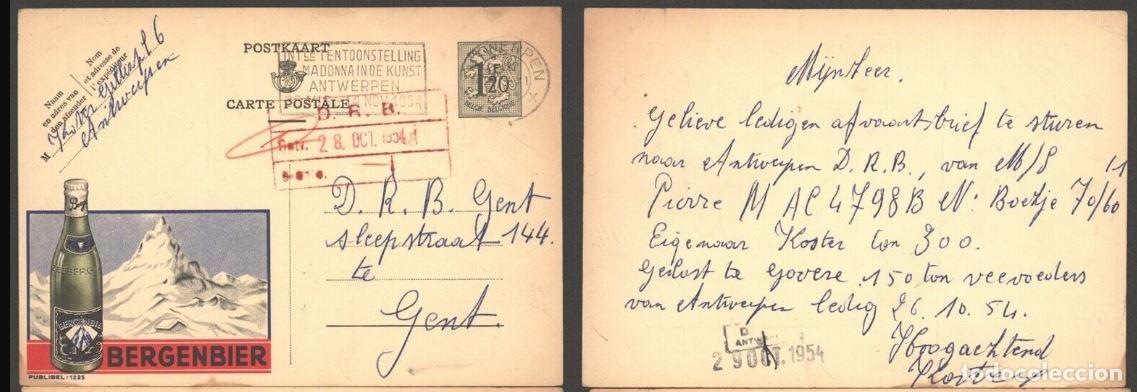 Nom
et adresse de
l'expéditeur
Naam
en adres van
den afzender
M
Antwerpen
POSTKAART
INTLE TENTOONSTELLING
MADONNA IN DE KUNST
ANTWERPEN
NOV. 1954
CARTE POSTALE
1F
20
BELGIE-BELGIQUE
ANTWERPEN
D. R. B.
28. OCT. 1954
D. R. B. Gent
Sleepstraat 144.
te
Gent.
BERGENBIER
BERGENBIER
PUBLIBEL: 1225
Mijnheer.
Gelieve ledigen afvaartsbrief te sturen
naar Antwerpen D. R. B., van M/S
Pierre M AC 4798B Nr Boekje 70/60
Eigenaar Koster ton 300.
Gelost te Gavere 150 ton veevoeders
van Antwerpen ledig 26. 10. 54.
Hoogachtend
D
ANTW
29 OCT. 1954
todocoleccion